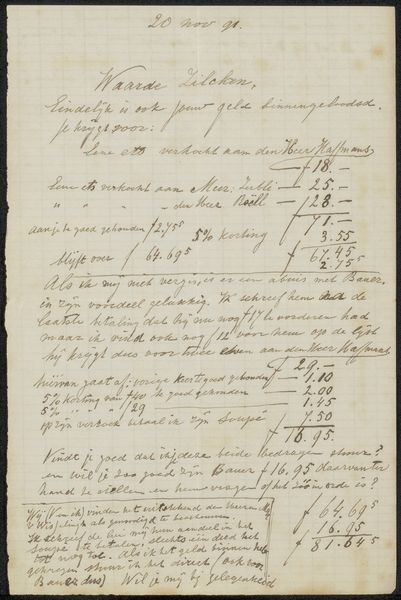 20 nov 91.
Waarde Zilcken,
Eindelijk is ook jouw geld binnengeloodsd.
Je krijgt voor:
Eene ets verkocht aan den Heer Haffmans
f 18.—
Eene ets verkocht aan Mevr: — 25.—
" " " — den Heer Röell — 28.—
f 71.—
aan je te goed gehouden f 2.75⁵ 5% korting 3.55
f 67.45
2.75⁵
blijft over f 64.69⁵
Als ik mij niet vergis, is er een abuis met Bauer,
in zijn voordeel gelukkig. Ik schreef hem de
laatste betaling dat hij nu nog f 17 te vorderen had
maar ik vind ook nog f 12 voor hem op de lijst
hij krijgt dus voor twee etsen aan den Heer Haffmans
f 29.—
hiervan gaat af: vorige keer te goed gehouden — 1.10
5% korting van f 40 te goed gehouden — 2.00
5% " " 29 — 1.45
op zijn verzoek betaal ik zijn soupé 7.50
f 16.95.
Vindt je goed dat ik je deze beide bedragen stuur?
en wil je zoo goed zijn Bauer f 16.95 daarvan ter
hand te stellen en hem vragen of het zoo in orde is?
Wij (V en ik) vinden het uitstekend de Heeren
als genoodigd te beschouwen.
Ik schreef je hier mijn aandeel in het
soupé te betalen, slechts één deed het
tot nog toe. Als ik het geld binnen heb
gekregen stuur ik het direct (ook voor
Bauer dus) Wil je mij bij gelegenheid
f 64.69⁵
f 16.95
f 81.64⁵